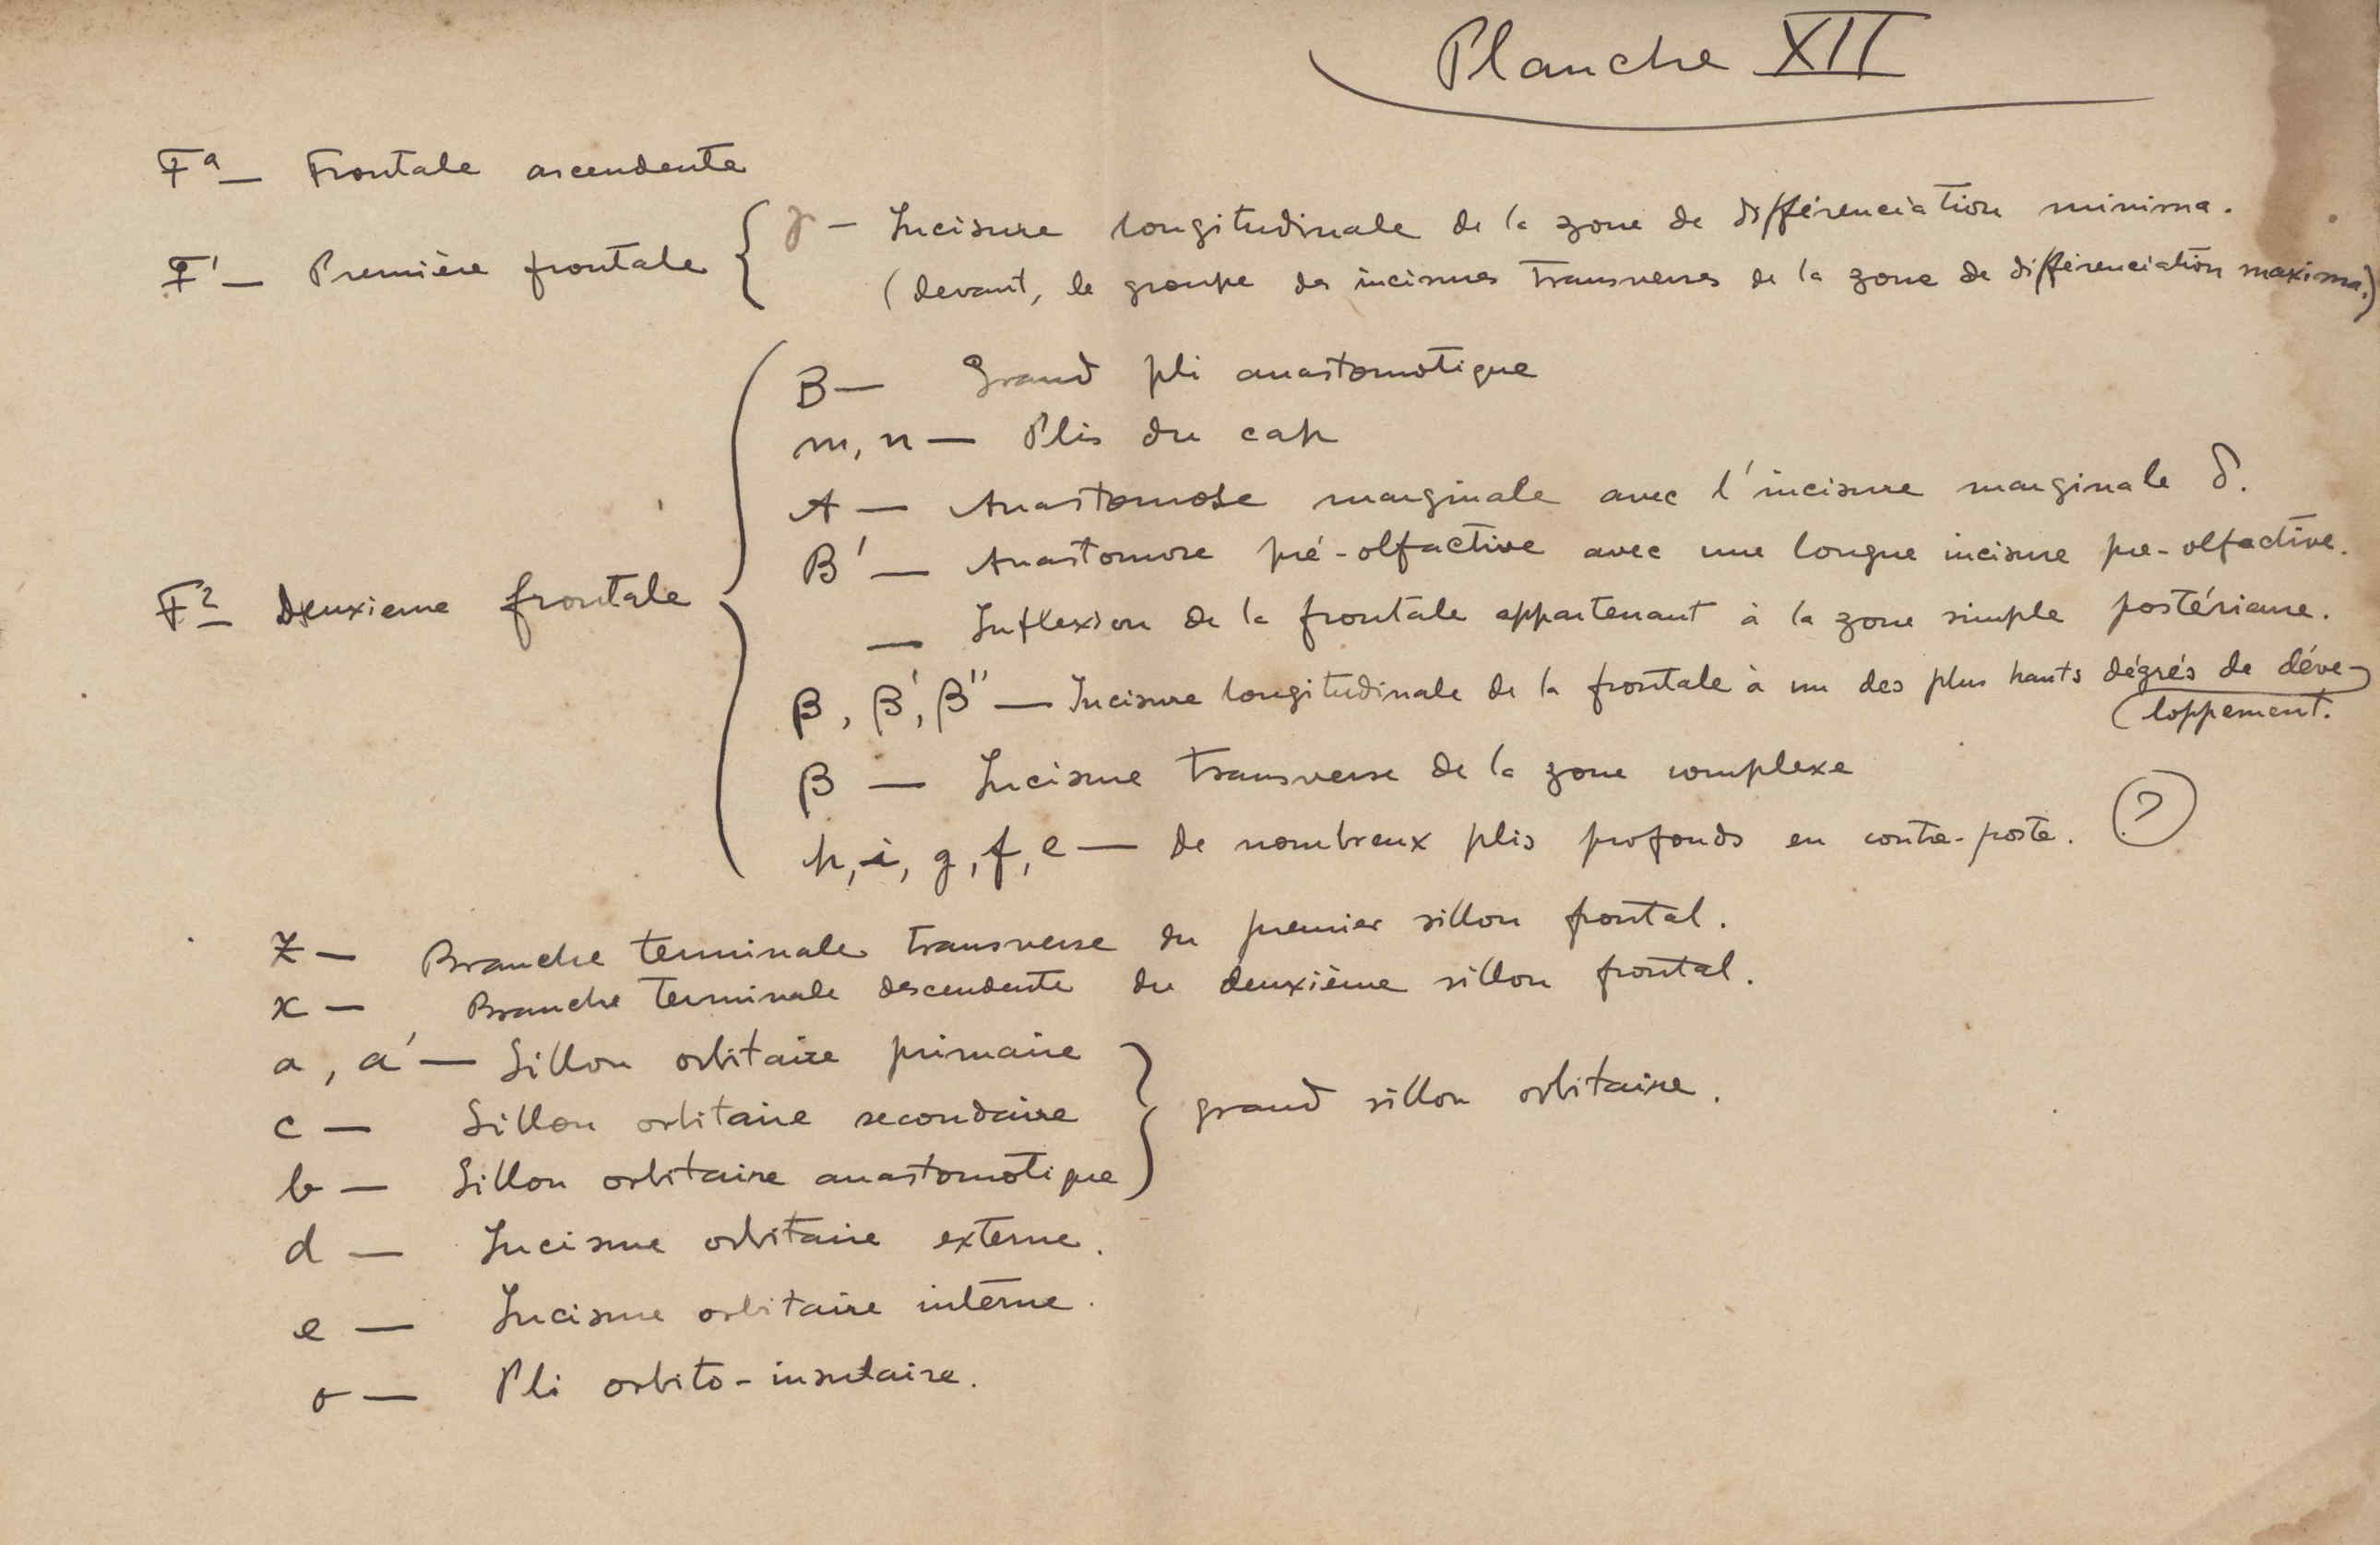 Planche XII
Fa — Frontale ascendente
γ — Incisure longitudinale de la zone de différenciation minima.
F' — Première frontale
(devant, le groupe des incisures transverses de la zone de différenciation maxima.)
B — Grand pli anastomotique
m, n — Plis du cap
A — Anastomose marginale avec l'incisure marginale δ.
B' — Anastomose pré-olfactive avec une longue incisure pre-olfactive.
F2 — Deuxieme frontale
— Inflexion de la frontale appartenant à la zone simple postérieure.
β, β', β'' — Incisure longitudinale de la frontale à un des plus hauts dégrés de déve-
loppement.
β — Incisure transverse de la zone complexe
h, i, g, f, e — de nombreux plis profonds en contre-poste. (?)
Z — Branche terminale transverse du premier sillon frontal.
x — Branche terminale descendente du deuxième sillon frontal.
a, a' — Sillon orbitaire primaire
c — Sillon orbitaire secondaire
grand sillon orbitaire.
b — Sillon orbitaire anastomotique
d — Incisure orbitaire externe.
e — Incisure orbitaire interne.
σ — Pli orbito-insulaire.